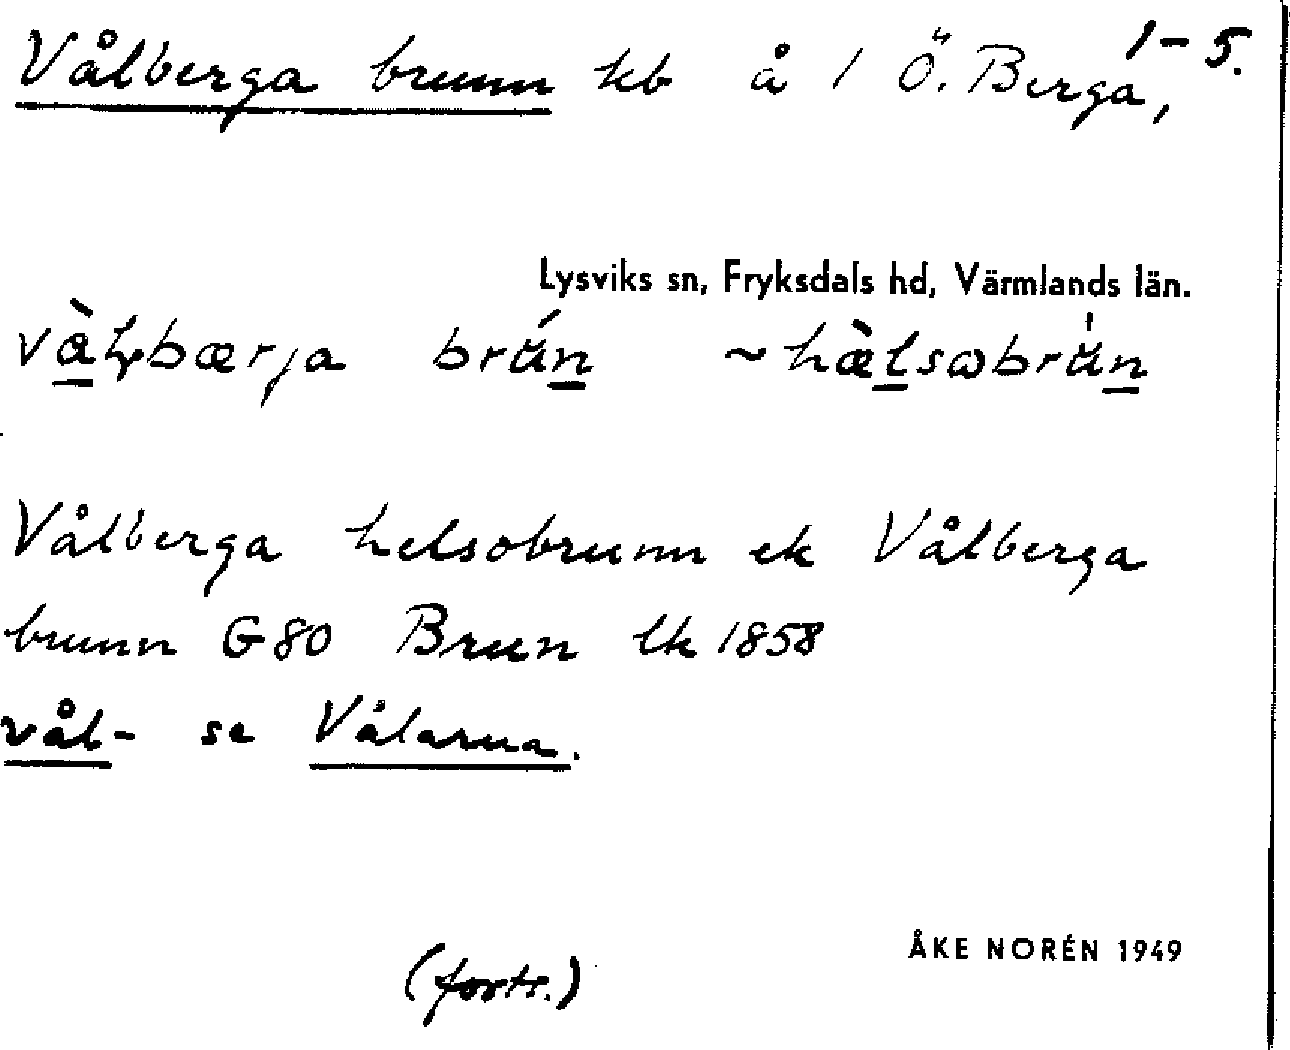 Vålberga brunn hb å 1 Ö. Berga, 1-5.
Lysviks sn, Fryksdals hd, Värmlands län.
brún
Vålberga helsobrunn ek Vålberga
brunn G80 Brun lk 1858
vål- se Vålarna.
ÅKE NORÉN 1949
(forts.)